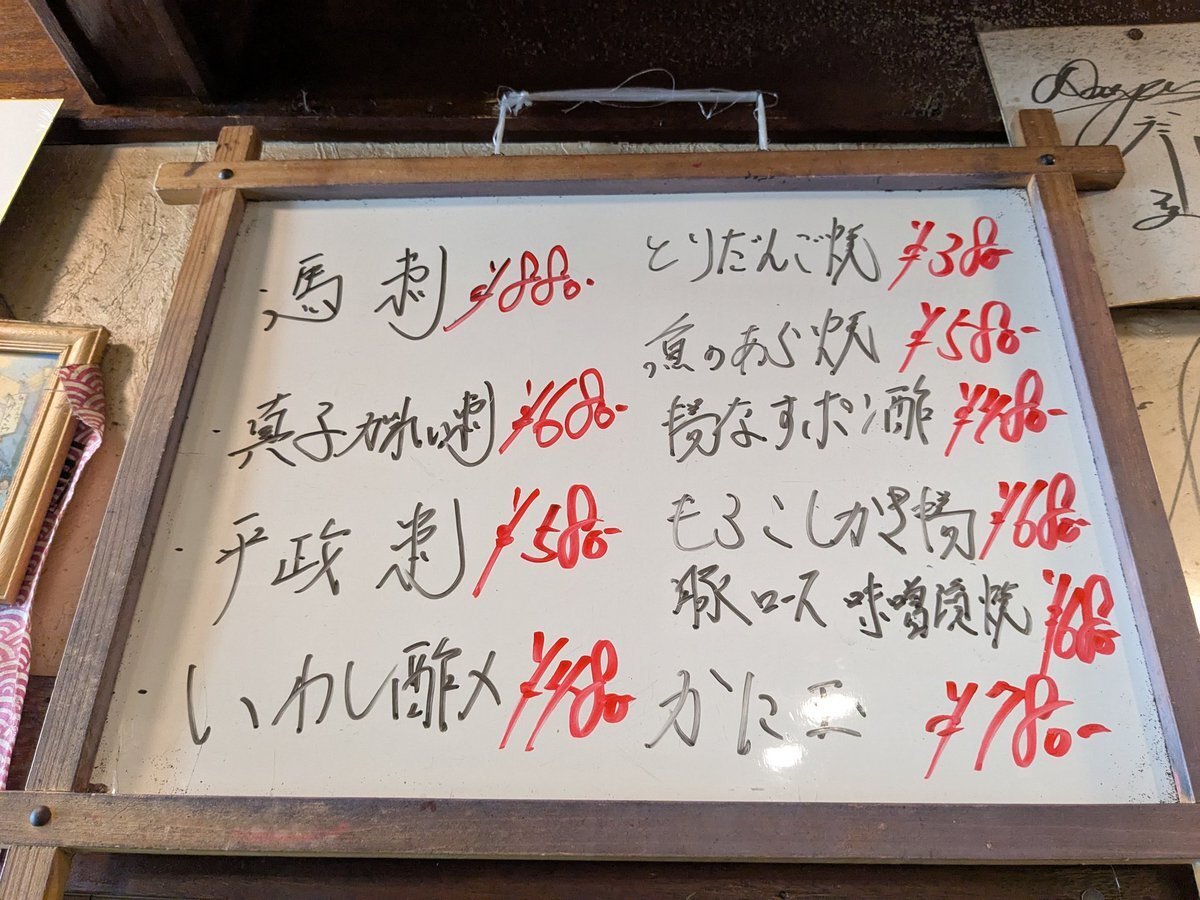 馬刺 ¥880-
真子がれい刺 ¥680-
平政刺 ¥580-
いわし酢〆 ¥480-
とりだんご焼 ¥380-
魚のあら焼 ¥580-
揚なすポン酢 ¥480-
もろこしかき揚 ¥680-
豚ロース味噌漬焼 ¥680-
かに玉 ¥780-